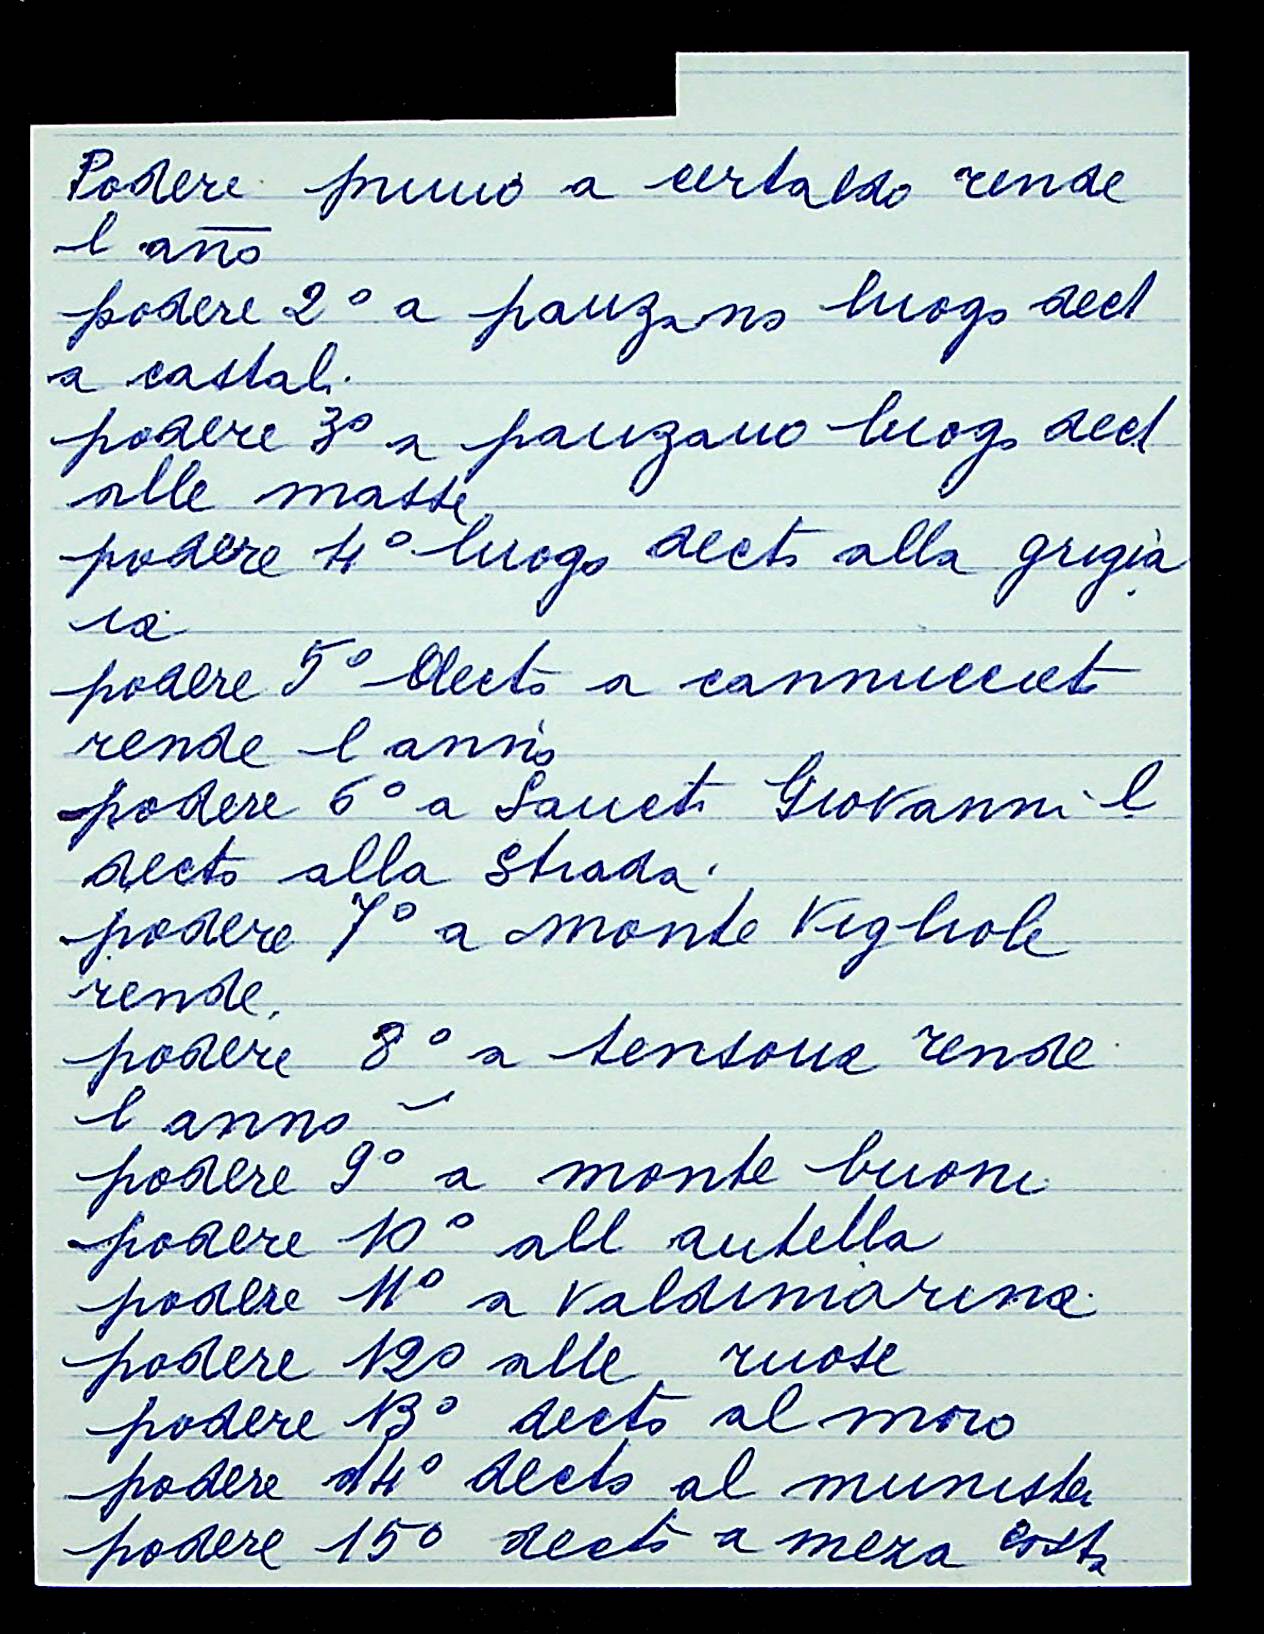 Podere primo a certaldo rende
l año
podere 2° a panzano luogo dect
a castal.
podere 3° a panzano luogo dect
alle masse
podere 4° luogo decto alla grigia
ia
podere 5° decto a cannucceto
rende l anno
podere 6° a Sancto Giovanni l
decto alla strada.
podere 7° a monte Vigliole
rende.
podere 8° a rende
l anno
podere 9° a monte buoni
podere 10° all antella
podere 11° a Valdimarina.
podere 12° alle ruose
podere 13° decto al moro
podere 14° decto al munister
podere 15° decto a meza costa